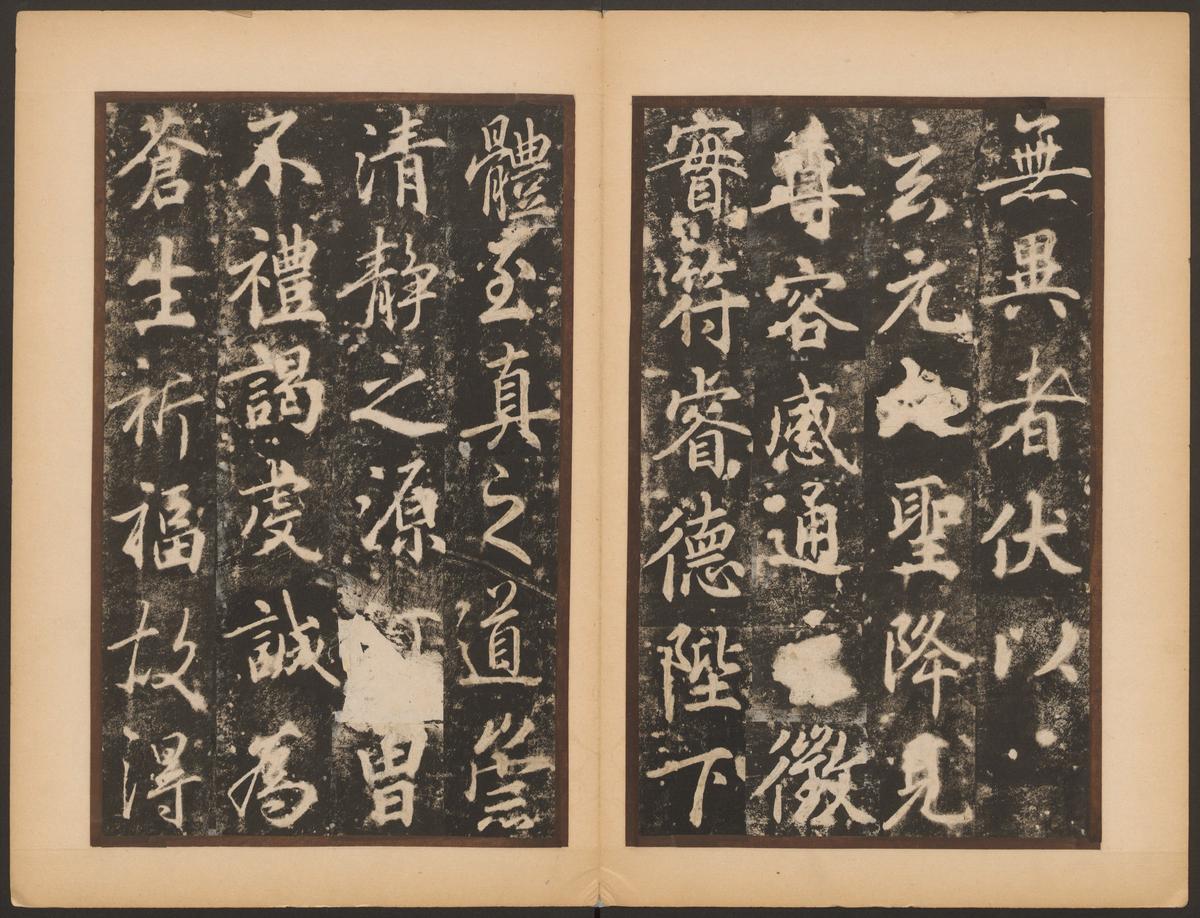 無異者伏以
玄元 聖降見
尊容感通 徵
寶符睿德陛下
體至真之道崇
清静之源 冒
不禮謁虔誠為
蒼生祈福故得